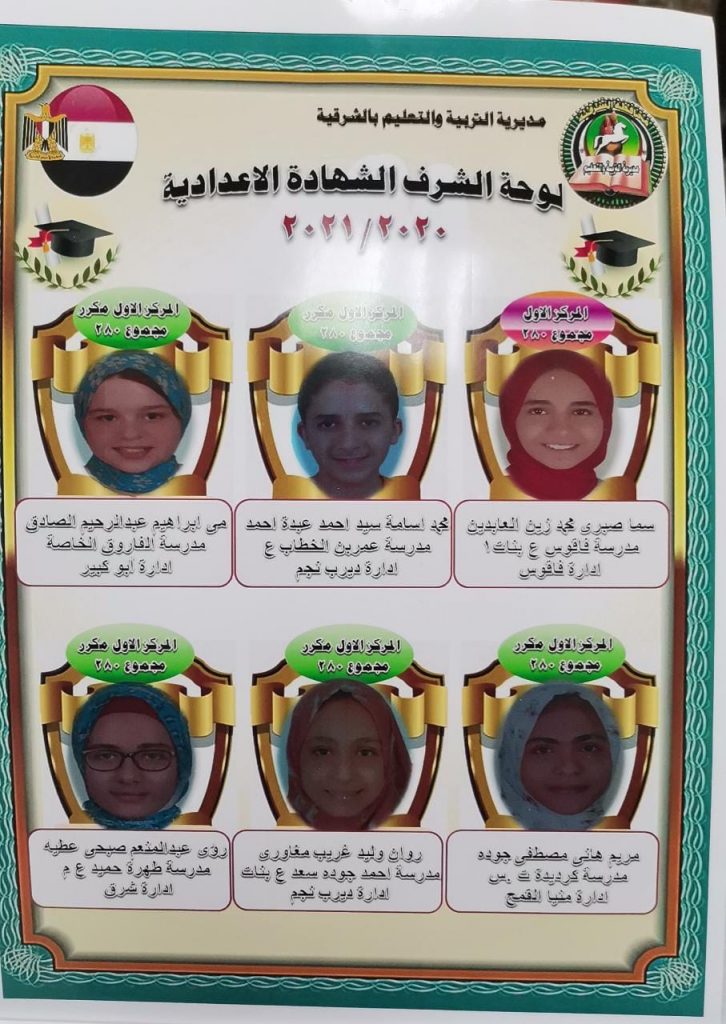 مديرية التربية والتعليم بالشرقية
لوحة الشرف الشهادة الاعدادية
٢٠٢١/٢٠٢٠
المركز الاول
مجموع ٢٨٠
سما صبرى محمد زين العابدين
مدرسة فاقوس ع بنات ١
ادارة فاقوس
المركز الاول مكرر
مجموع ٢٨٠
محمد اسامة سيد احمد عبدة احمد
مدرسة عمر بن الخطاب ع
ادارة ديرب نجم
المركز الاول مكرر
مجموع ٢٨٠
مى ابراهيم عبدالرحيم الصادق
مدرسة الفاروق الخاصة
ادارة ابو كبير
المركز الاول مكرر
مجموع ٢٨٠
مريم هانى مصطفى جوده
مدرسة كرديدة ت .س
ادارة منيا القمح
المركز الاول مكرر
مجموع ٢٨٠
روان وليد غريب مغاورى
مدرسة احمد جوده سعد ع بنات
ادارة ديرب نجم
المركز الاول مكرر
مجموع ٢٨٠
رؤى عبدالمنعم صبحى عطيه
مدرسة طهرة حميد ع م
ادارة شرق